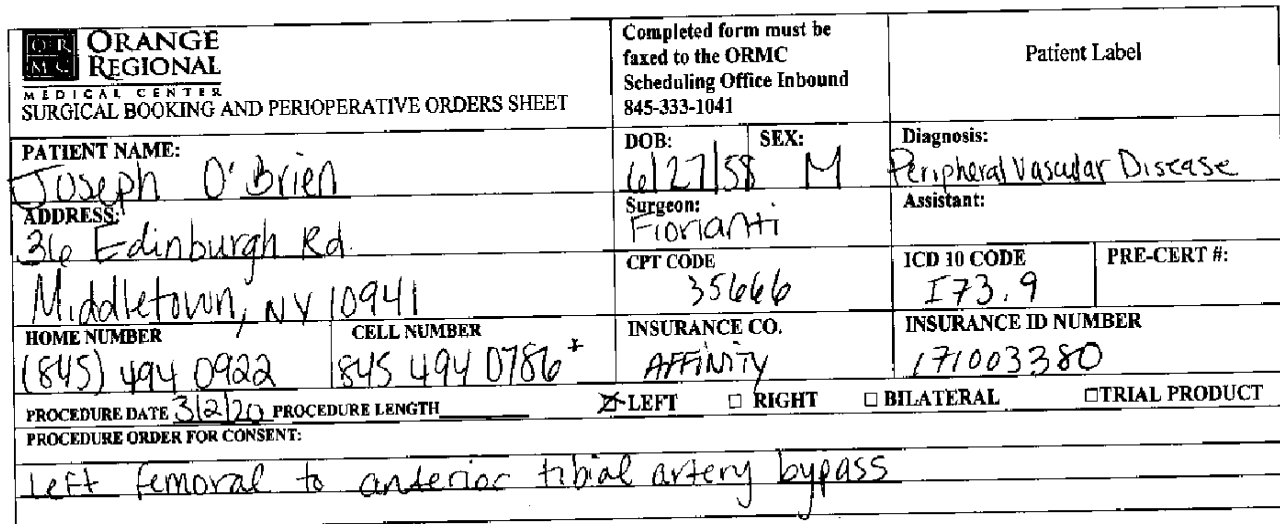 OR
MC
ORANGE
REGIONAL
MEDICAL CENTER
SURGICAL BOOKING AND PERIOPERATIVE ORDERS SHEET
Completed form must be
faxed to the ORMC
Scheduling Office Inbound
845-333-1041
Patient Label
PATIENT NAME:
Joseph O'Brien
DOB:
6/27/58
SEX:
M
Diagnosis:
Peripheral Vascular Disease
ADDRESS:
36 Edinburgh Rd.
Middletown, NY 10941
Surgeon:
Fiorianti
Assistant:
CPT CODE
35666
ICD 10 CODE
I73.9
PRE-CERT #:
HOME NUMBER
(845) 494 0922
CELL NUMBER
845 494 0786*
INSURANCE CO.
AFFINITY
INSURANCE ID NUMBER
171003380
PROCEDURE DATE 3/2/20 PROCEDURE LENGTH ☒ LEFT ☐ RIGHT ☐ BILATERAL ☐ TRIAL PRODUCT
PROCEDURE ORDER FOR CONSENT:
Left femoral to anterior tibial artery bypass